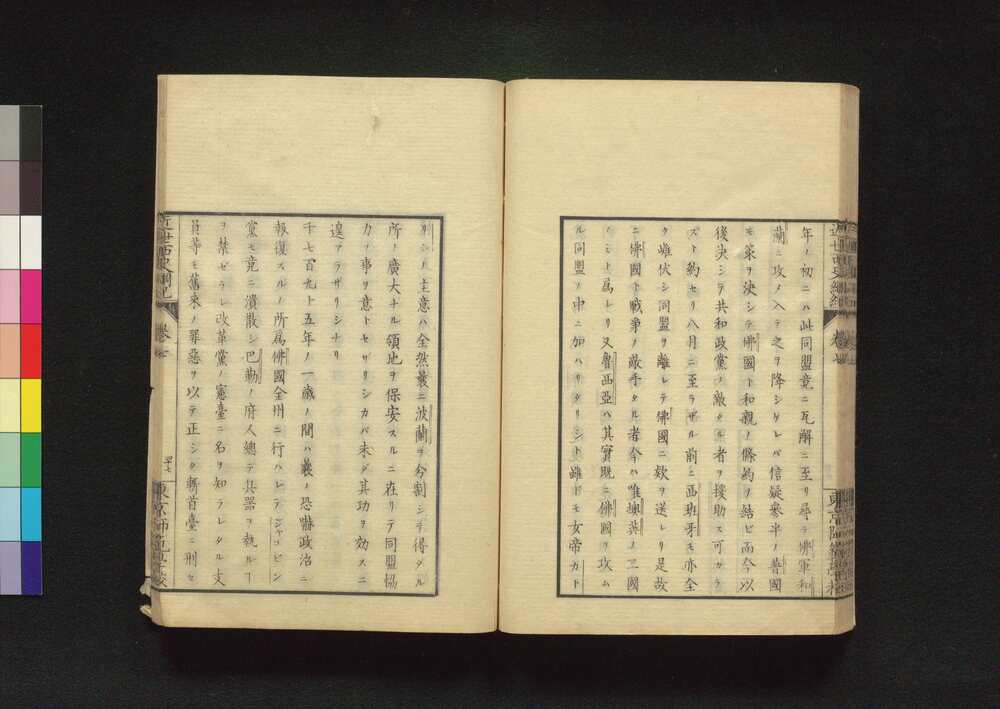 年ノ初ニハ此同盟竟ニ瓦解ニ至リ尋テ佛軍和
蘭ニ攻メ入テ之ヲ降シケレバ信疑參半ノ普國
モ策ヲ決シテ佛國ト和親ノ條約ヲ結ビ而今以
後決シテ共和政黨ノ敵タル者ヲ援助ス可カラ
ズト約セリ八月ニ至ラザル前ニ西班牙モ亦全
ク雌伏シ同盟ヲ離レテ佛國ニ欸ヲ送レリ是故
ニ佛國ト戰爭ノ敵手タル者今ハ唯墺英ノ二國
ノミト爲レリ又魯西亞ハ其實既ニ佛國ヲ攻ム
ル同盟ノ中ニ加ハリタリシト雖ドモ女帝カト
リンノ主意ハ全然曩ニ波蘭ヲ分割シテ得タル
所ノ廣大ナル領地ヲ保安スルニ在リテ同盟協
力ノ事ヲ意トセザリシカバ未ダ其功ヲ効スニ
遑アラザリシナリ
千七百九十五年ノ一歳ノ間ハ曩ノ恐嚇政治ニ
報復スルノ所爲佛國全州ニ行ハレテジャコビン
黨モ竟ニ潰散シ巴勒ノ府人總テ兵器ヲ執ル
ヲ禁ゼラレ改革黨ノ憲臺ニ名ヲ知ラレタル文
員等モ舊來ノ罪惡ヲ以テ正シク斬首臺ニ刑セ
近世西史綱紀
卷七
四十七
東京師範學校